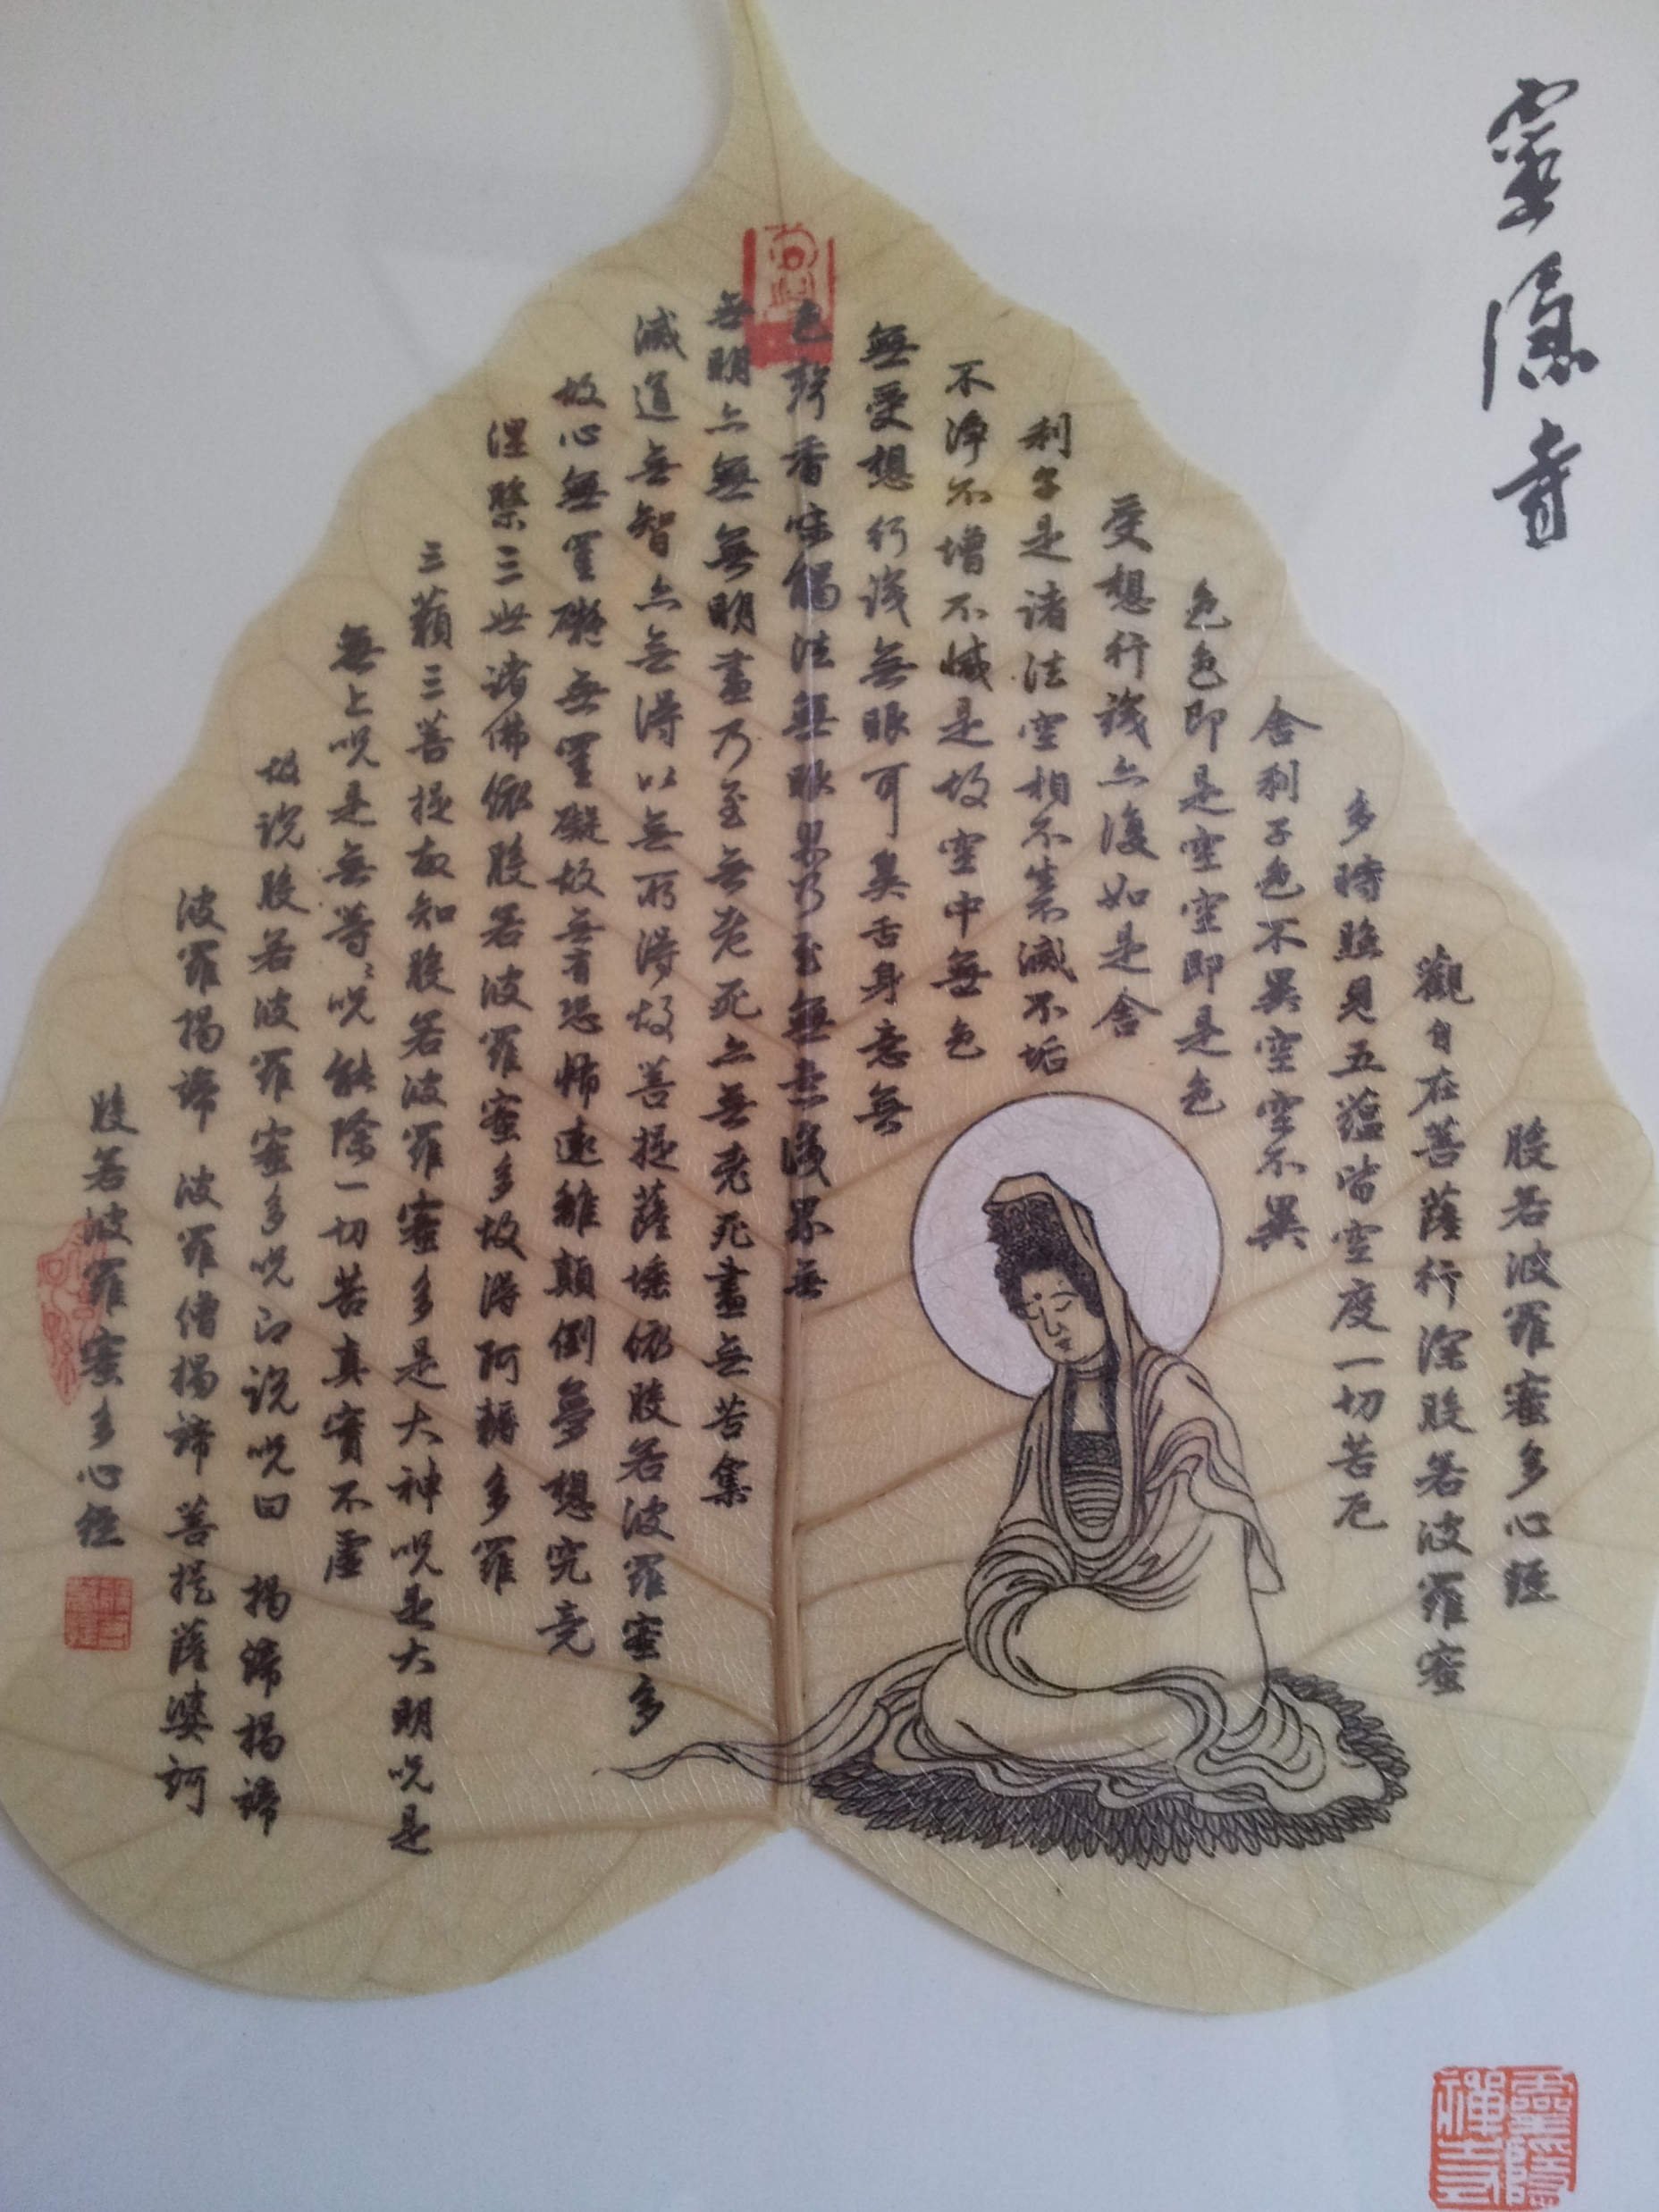 靈隱寺
般若波羅蜜多心經
觀自在菩薩行深般若波羅蜜
多時照見五蘊皆空度一切苦厄
舍利子色不異空空不異
色色即是空空即是色
受想行識亦復如是舍
利子是諸法空相不生不滅不垢
不淨不增不減是故空中無色
無受想行識無眼耳鼻舌身意無
色聲香味觸法無眼界乃至無意識界無
無明亦無無明盡乃至無老死亦無老死盡無苦集
滅道無智亦無得以無所得故菩提薩埵依般若波羅蜜多
故心無罣礙無罣礙故無有恐怖遠離顛倒夢想究竟
涅槃三世諸佛依般若波羅蜜多故得阿耨多羅
三藐三菩提故知般若波羅蜜多是大神呪是大明呪是
無上呪是無等々呪能除一切苦真實不虛
故說般若波羅蜜多呪即說呪曰 揭諦揭諦
波羅揭諦 波羅僧揭諦 菩提薩婆訶
般若波羅蜜多心經
靈隱
禪寺